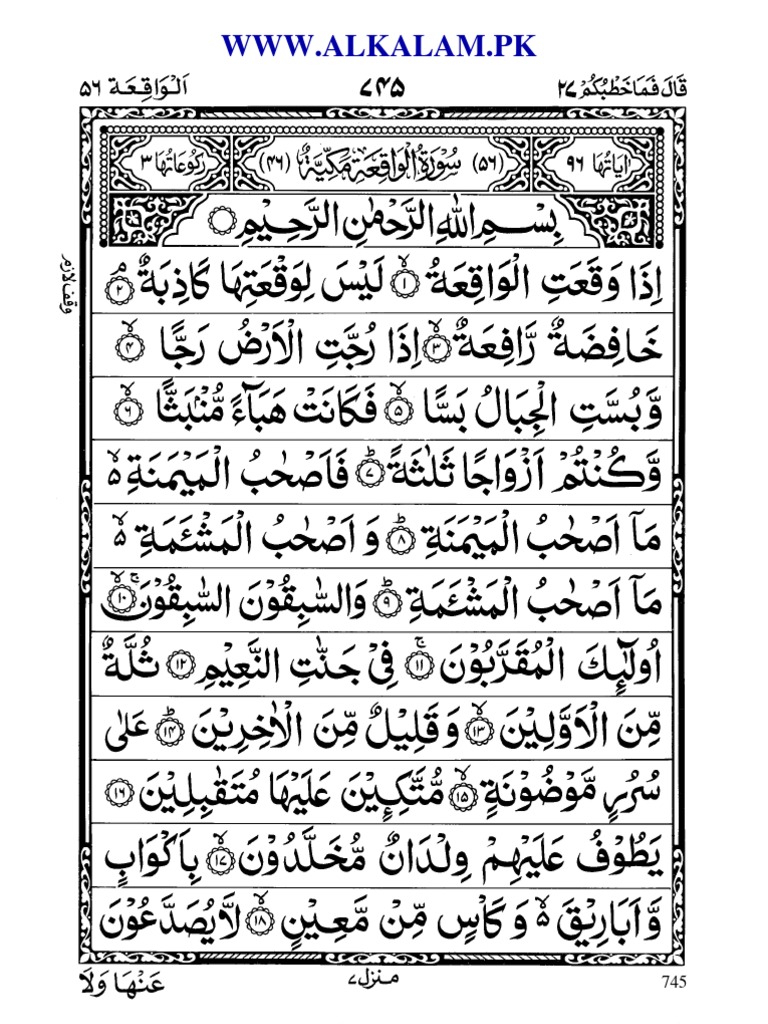 WWW.ALKALAM.PK
قَالَ فَمَا خَطْبُكُمْ ۲۷ ۷۴۵ اَلْوَاقِعَة ۵۶
اٰيَاتُهَا ۹۶ (۵۶) سُوْرَةُ الْوَاقِعَةِ مَكِّيَّةٌ (۴۶) رُكُوْعَاتُهَا ۳
بِسْمِ اللّٰهِ الرَّحْمٰنِ الرَّحِيْمِ
اِذَا وَقَعَتِ الْوَاقِعَةُ ۙ‏﴿۱﴾ لَيْسَ لِوَقْعَتِهَا كَاذِبَةٌ ۘ‏﴿۲﴾
وقف لازم
خَافِضَةٌ رَّافِعَةٌ ۙ‏﴿۳﴾ اِذَا رُجَّتِ الْاَرْضُ رَجًّا ۙ‏﴿۴﴾
وَّبُسَّتِ الْجِبَالُ بَسًّا ۙ‏﴿۵﴾ فَكَانَتْ هَبَآءً مُّنْۢبَثًّا ۙ‏﴿۶﴾
وَّكُنْتُمْ اَزْوَاجًا ثَلٰثَةً ؕ‏﴿۷﴾ فَاَصْحٰبُ الْمَيْمَنَةِ ۙ۬
مَاۤ اَصْحٰبُ الْمَيْمَنَةِ ؕ‏﴿۸﴾ وَ اَصْحٰبُ الْمَشْـَٔمَةِ ۙ۬
مَاۤ اَصْحٰبُ الْمَشْـَٔمَةِ ؕ‏﴿۹﴾ وَالسّٰبِقُوْنَ السّٰبِقُوْنَ ۚۙ‏﴿۱۰﴾
اُولٰٓئِكَ الْمُقَرَّبُوْنَ ۚ‏﴿۱۱﴾ فِىْ جَنّٰتِ النَّعِيْمِ ﴿۱۲﴾ ثُلَّةٌ
مِّنَ الْاَوَّلِيْنَ ۙ‏﴿۱۳﴾ وَ قَلِيْلٌ مِّنَ الْاٰخِرِيْنَ ؕ‏﴿۱۴﴾ عَلٰى
سُرُرٍ مَّوْضُوْنَةٍ ۙ‏﴿۱۵﴾ مُّتَّكِـِٕيْنَ عَلَيْهَا مُتَقٰبِلِيْنَ ﴿۱۶﴾
يَطُوْفُ عَلَيْهِمْ وِلْدَانٌ مُّخَلَّدُوْنَ ۙ‏﴿۱۷﴾ بِاَكْوَابٍ
وَّ اَبَارِيْقَ ۙ۬ وَ كَاْسٍ مِّنْ مَّعِيْنٍ ۙ‏﴿۱۸﴾ لَّا يُصَدَّعُوْنَ
عَنْهَا وَلَا منزل ۷ 745